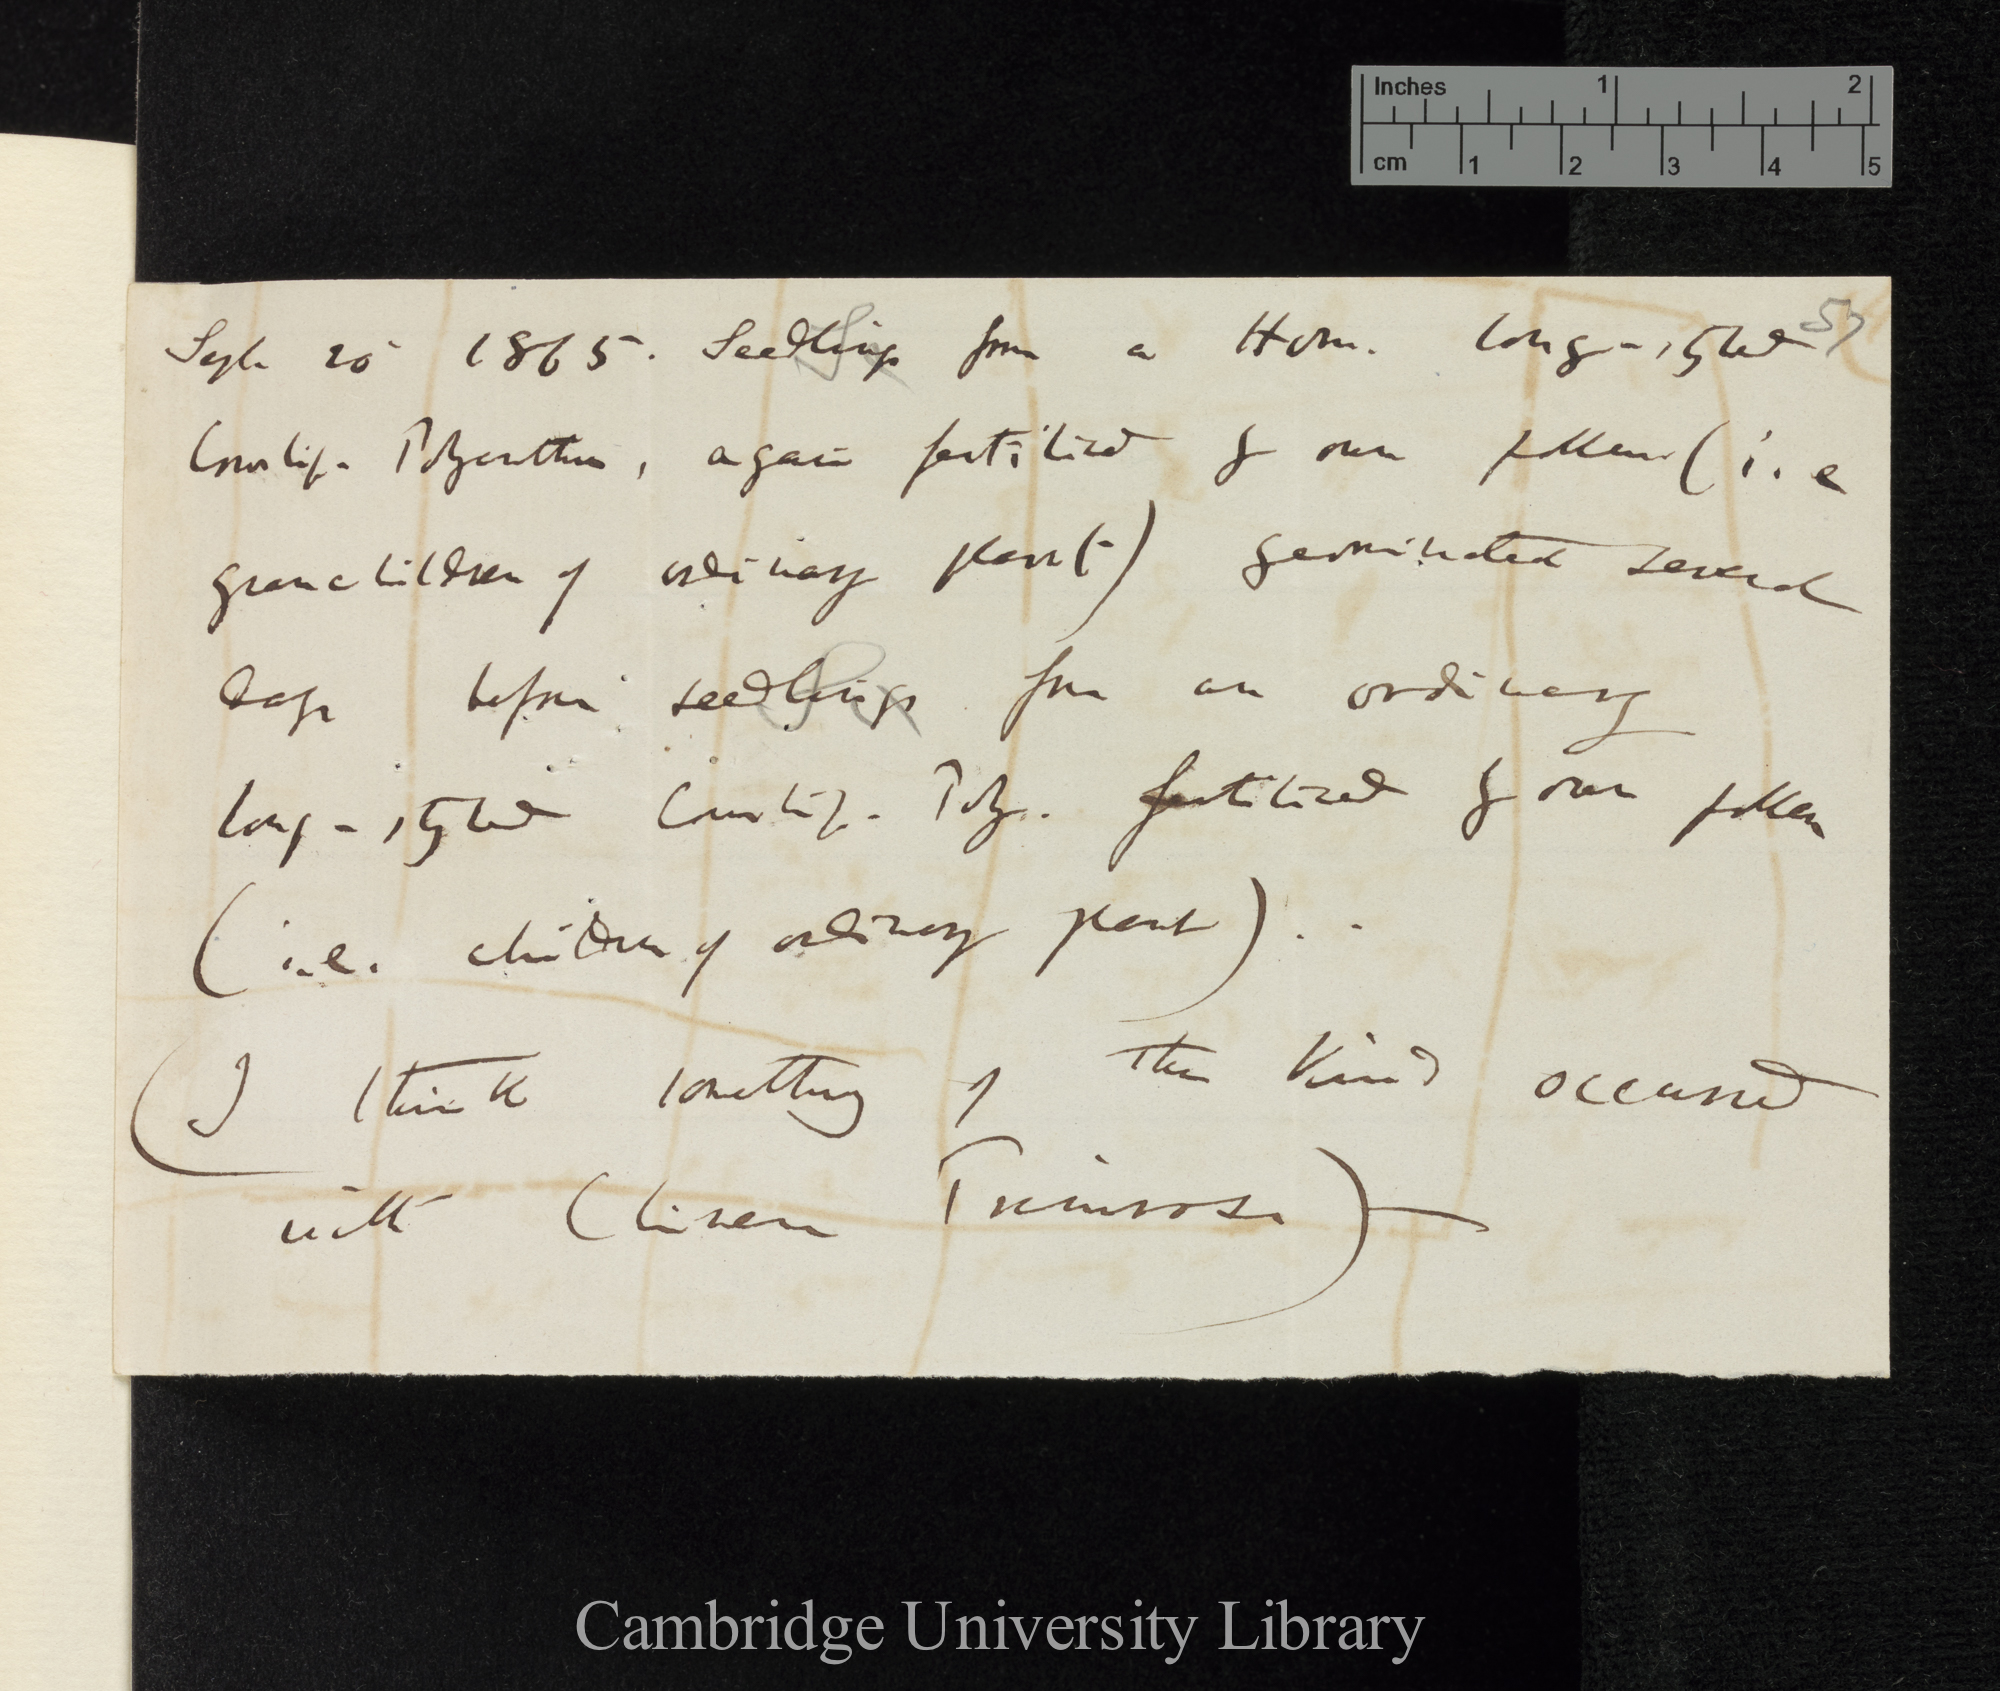 Inches 1 2
cm 1 2 3 4 5
57
Sept 20 1865. Seedlings from a Hom. long-styled
Cowslip-Polyanthus, again fertilised by own pollen (i.e
granchildren of ordinary plant) germinated several
days before seedlings from an ordinary
long-styled Cowslip-Poly. fertilized by own pollen
(i.e. children of ordinary plant). -
(I think something of the kind occurred
with Chinese Primrose)—
Cambridge University Library